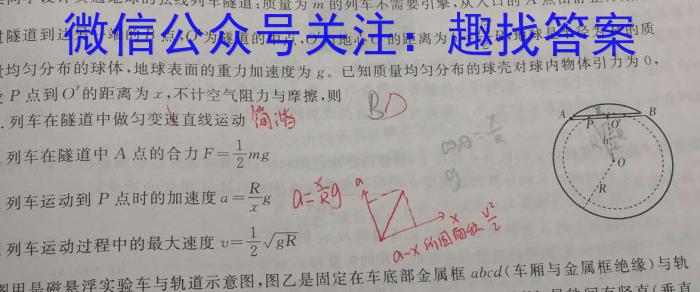 质量为 m 的列车不需要引擎,从入口的 A 点
微信公众号关注:趣找答案
隧道到达
质
均匀分布的球体,地球表面的重力加速度为 g。已知质量均匀分布的球壳对球内物体引力为 0,
P 点到 O′的距离为 x,不计空气阻力与摩擦,则
BD
.列车在隧道中做匀变速直线运动 简谐
列车在隧道中 A 点的合力 F=1/2 mg
列车运动到 P 点时的加速度 a=R/x g
a=x/R g
列车运动过程中的最大速度 v=1/2 √gR
a-x 所围面积 v²/2
cosθ=x/R
g
a
x
A P O′ B
O
R
图甲是磁悬浮实验车与轨道示意图,图乙是固定在车底部金属框 abcd(车厢与金属框绝缘)与轨